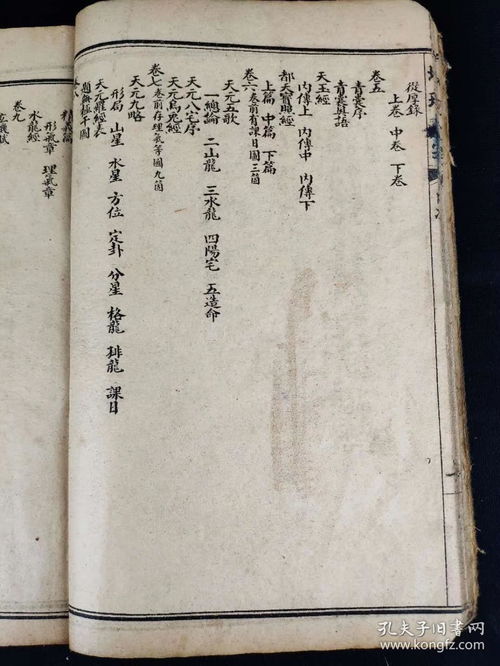 從厚錄
上卷 中卷 下卷
卷五
青囊序
青囊奧語
天玉經
內傳上 內傳中 內傳下
都天寶照經
上篇 中篇 下篇
卷六卷前有課日圖三箇
天元五歌
一總論 二山龍 三水龍 四陽宅 五造命
天元八宅序
天元烏兔經
卷七卷前存理氣等圖九箇
天元九略
形局 山星 水星 方位 定卦 分星 格龍 排龍 課日
形氣章 理氣章
水龍經
卷九
孔夫子旧書网
www.kongfz.com